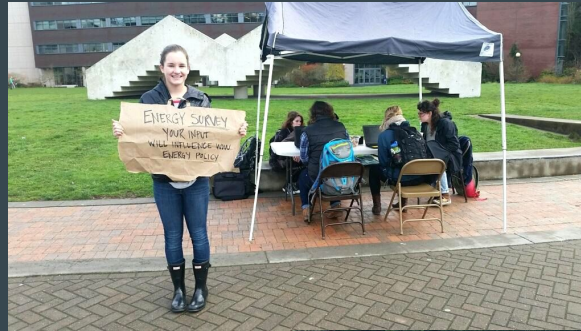 ENERGY SURVEY
YOUR INPUT
WILL INFLUENCE WWU
ENERGY POLICY